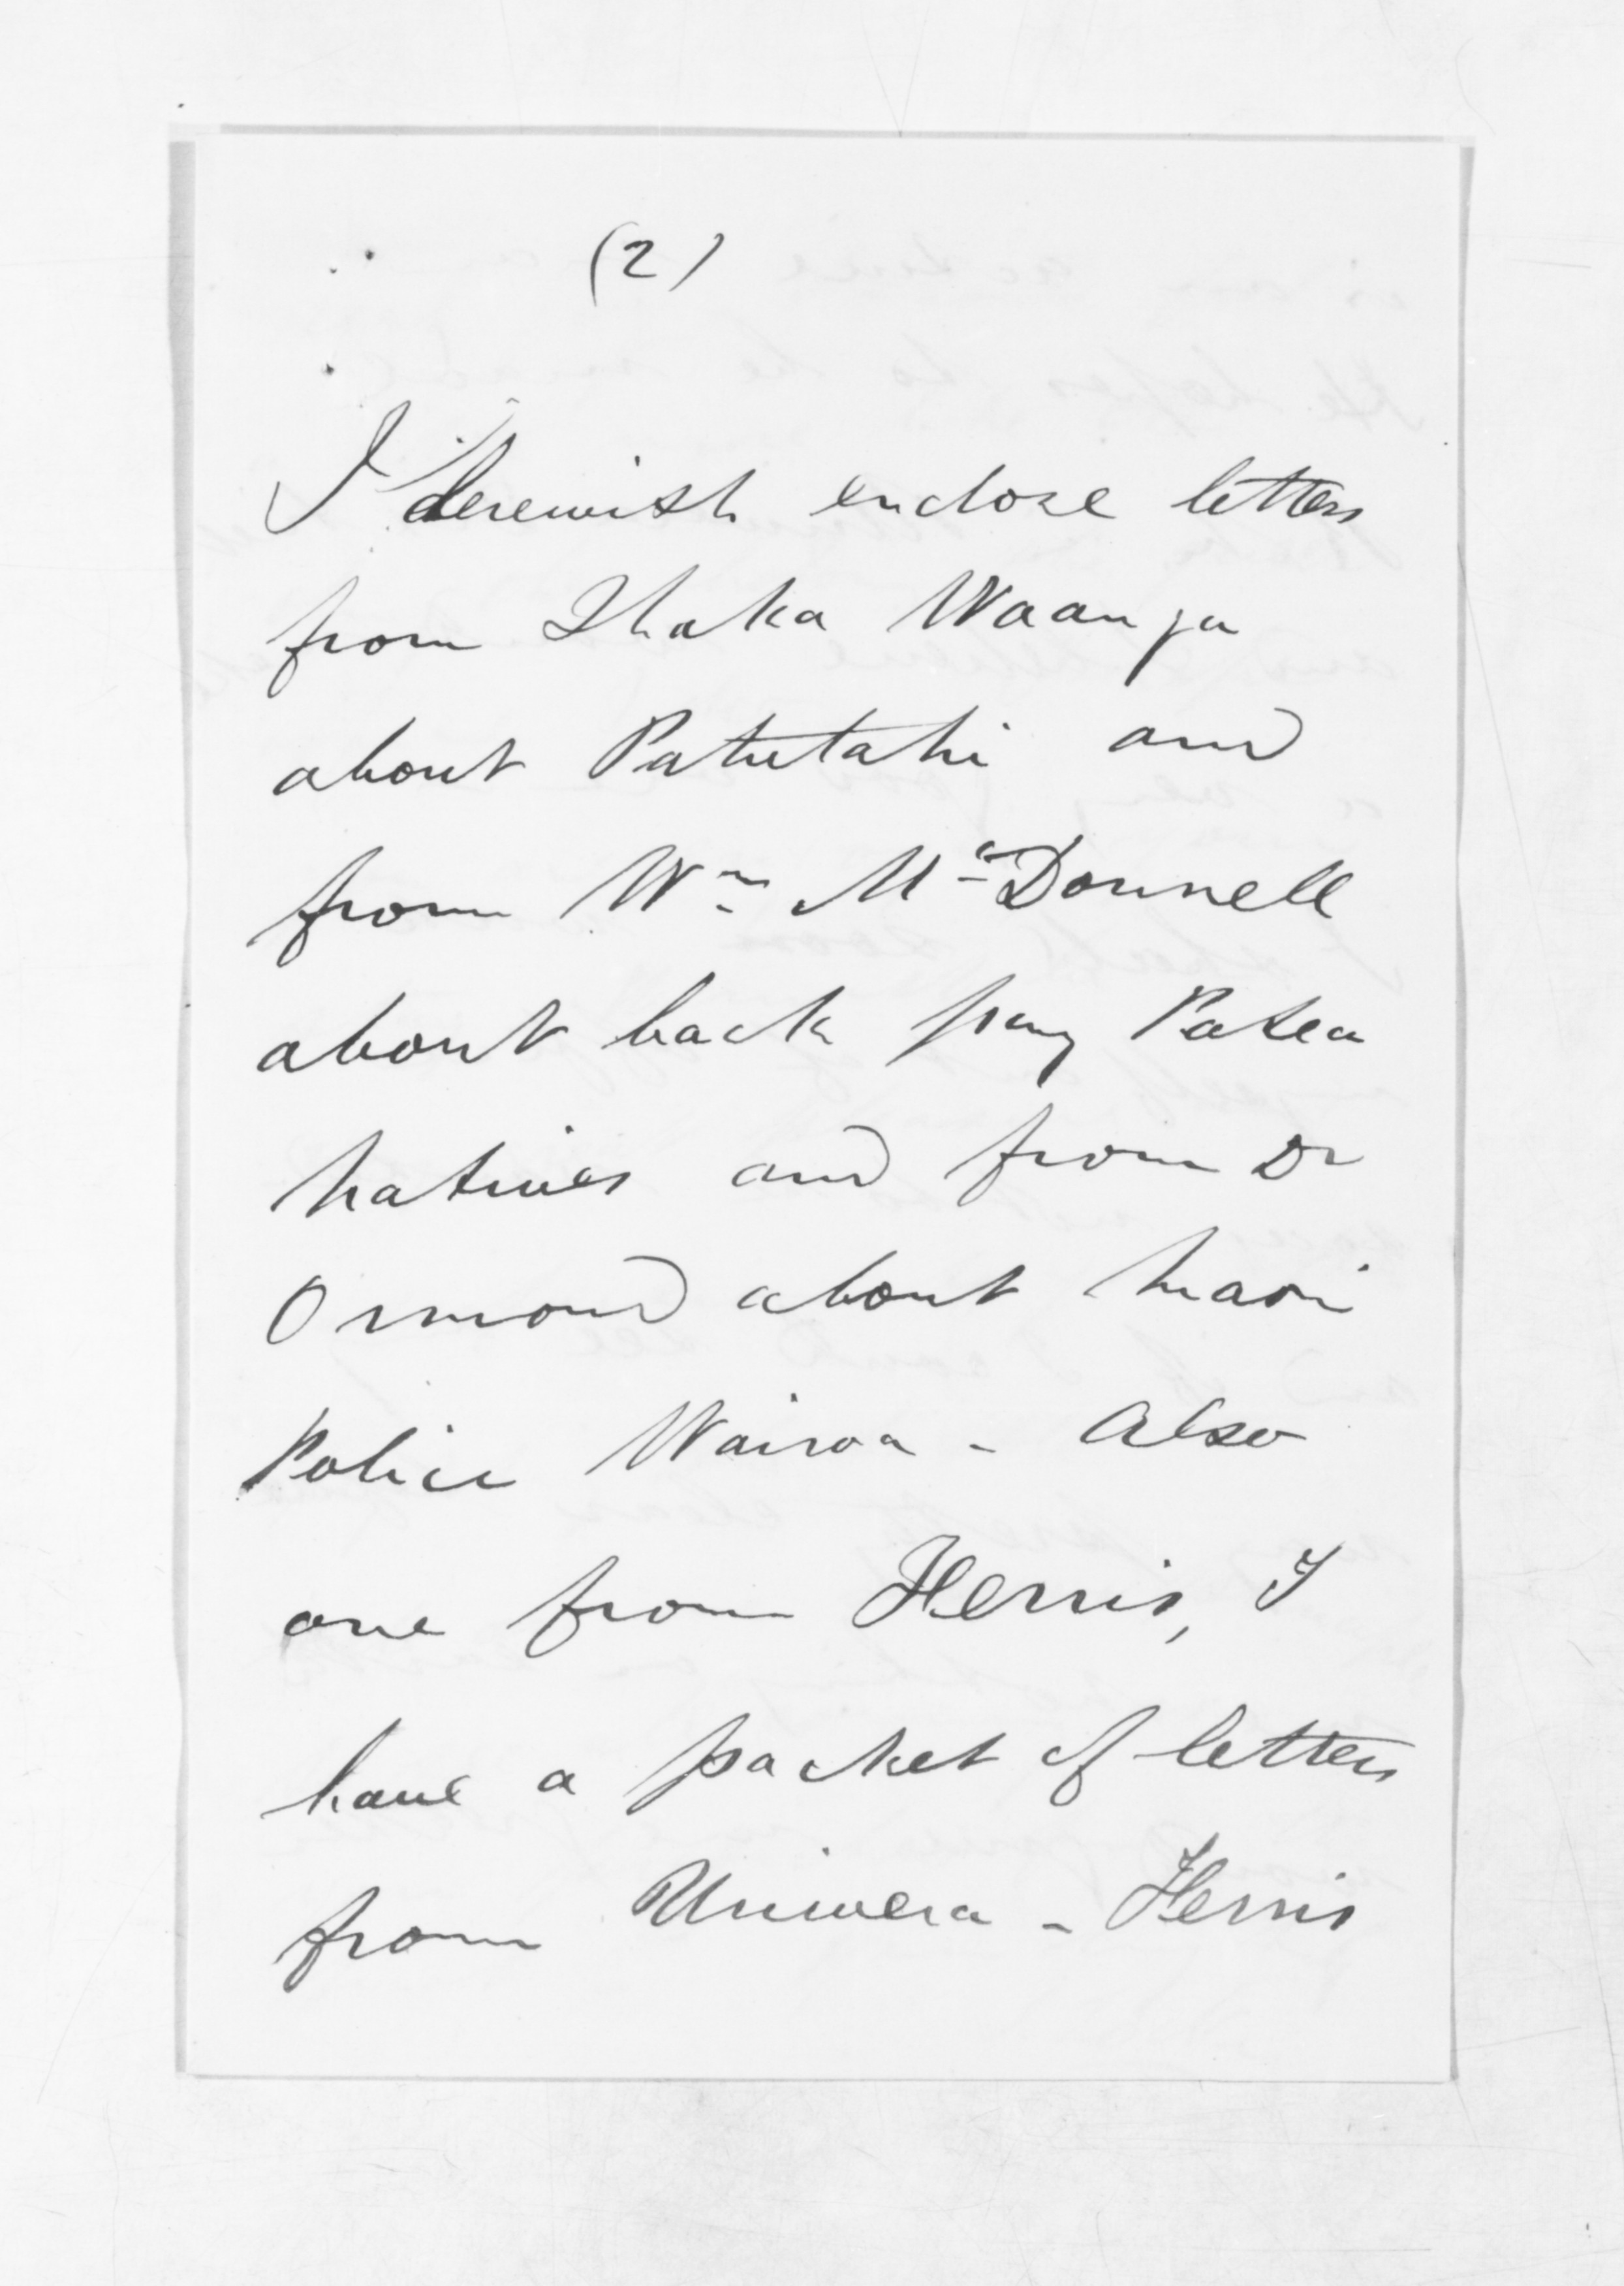 (2)
I herewith enclose letters
from Ihaka Waanga
about Patutahi and
from Wm McDonnell
about back pay Patea
natives and from Dr
Ormond about Maori
Police Wairoa - Also
one from Ferris, I
have a packet of letters
from Uriwera - Ferris